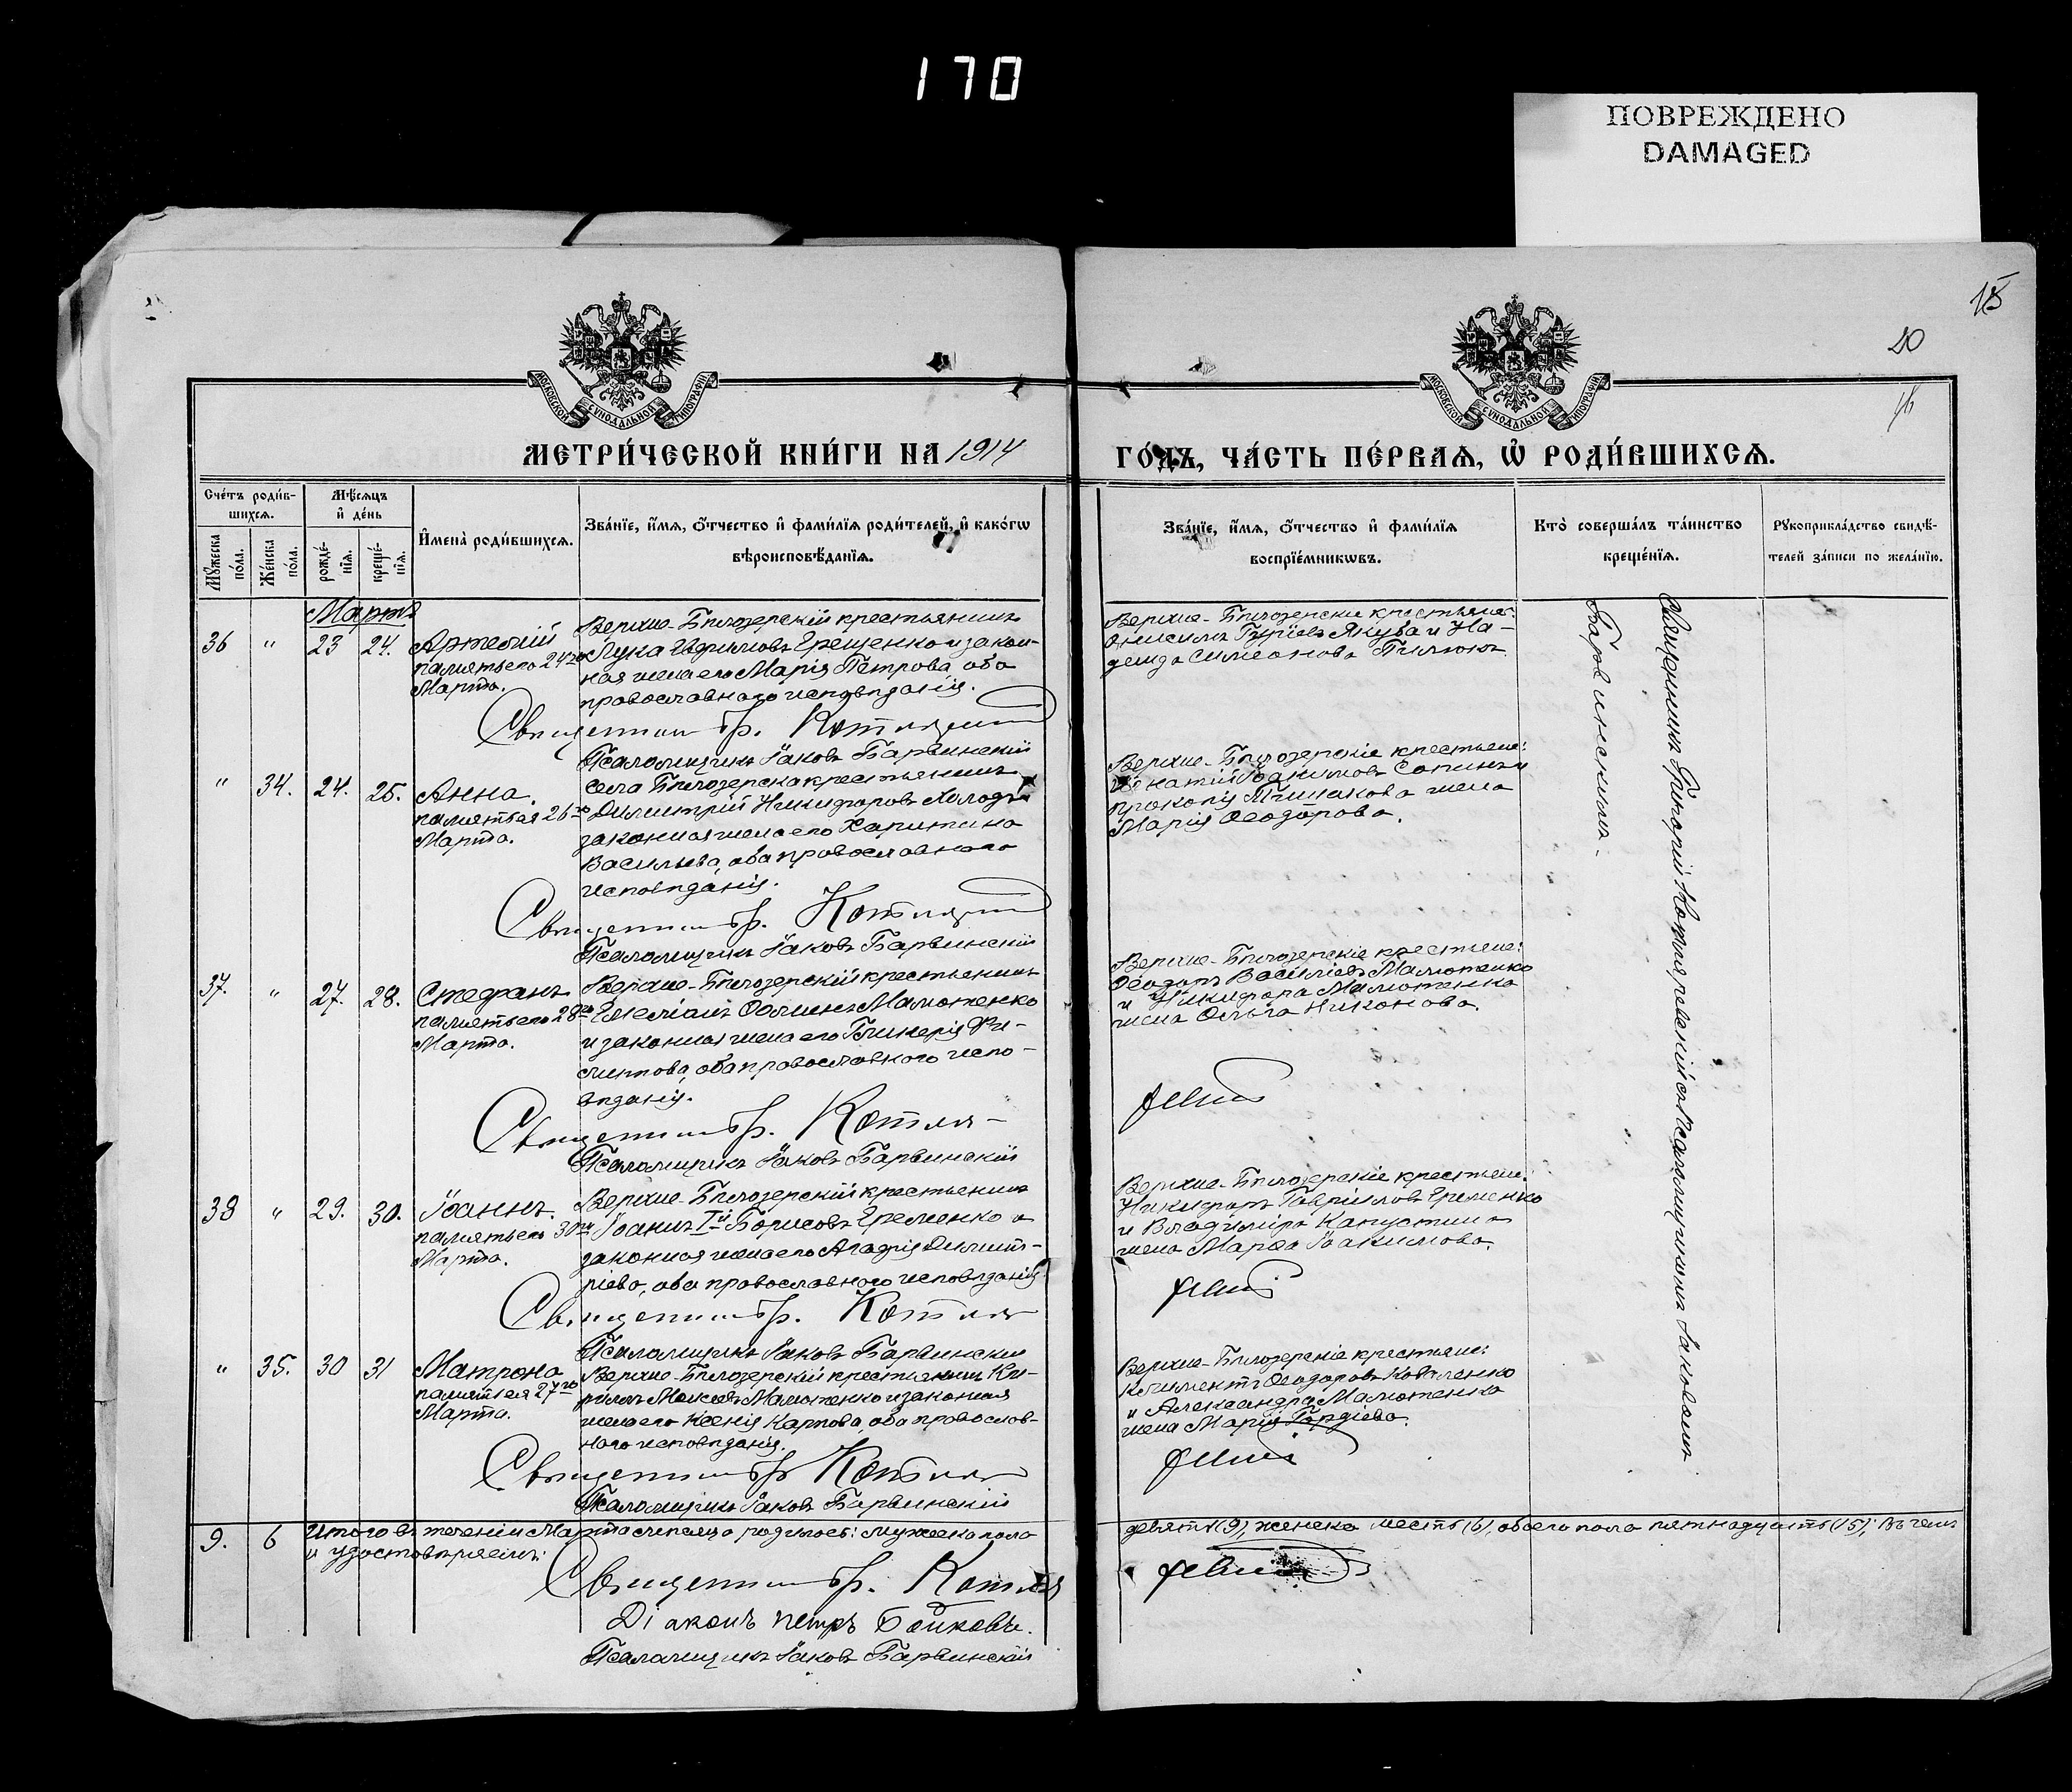 170
ПОВРЕЖДЕНО
DAMAGED
18
20
16
МОСКОВСКОЙ СѴНОДАЛЬНОЙ ТИПОГРАФІИ
МОСКОВСКОЙ СѴНОДАЛЬНОЙ ТИПОГРАФІИ
МЕТРИ́ЧЕСКОЙ КНИ́ГИ НА 1914
ГО́ДЪ, ЧА́СТЬ ПЕ́РВАѦ, Ѡ҆ РОДИ́ВШИХСѦ.
Сче́тъ роди́в-
шихсѧ.
Мꙋ́жеска по́ла.
Же́нска по́ла.
Мѣ́сѧцъ
и҆ де́нь
рожде́-
нїѧ.
креще́-
нїѧ.
И҆мена̀ роди́вшихсѧ.
Зва́нїе, и҆́мѧ, ѻ҆́тчество и҆ фами́лїѧ роди́телей, и҆ како́гѡ
вѣроисповѣ́данїѧ.
Зва́нїе, и҆́мѧ, ѻ҆́тчество и҆ фами́лїѧ
воспрїе́мникѡвъ.
Кто̀ соверша́лъ та́инство
креще́нїѧ.
Рꙋкоприкла́дство свидѣ́-
телей за́писи по жела́нїю.
Мартъ
36 " 23 24.
Артемій
память его 24го
Марта.
Верхне-Бѣлозерскій крестьянинъ
Лука Ефимовъ Ерещенко и закон-
ная жена его Марія Петрова, оба
православнаго исповѣданія.
Священникъ Гр. Котляревскій
Псаломщикъ Іаковъ Барвинскій
Верхне-Бѣлозерские крестьяне:
Онисимъ Гурiевъ Якуба и На-
дежда Симеонова
" 34. 24. 25.
Анна.
память ея 26го
Марта.
Села Бѣлозерска крестьянинъ
Димитрій Никифоровъ Холодъ и
законная жена его Харитина
Васильева, оба православнаго
исповѣданія.
Священникъ Гр. Котляревскій
Псаломщикъ Іаковъ Барвинскій
Верхне-Бѣлозерскіе крестьяне:
Игнатій Іоакимовъ и
Прокопія жена
Марія Ѳеодорова.
37. " 27. 28.
Стефанъ
память его 28го
Марта.
Верхне-Бѣлозерскій крестьянинъ
Емеліанъ Ѳоминъ Малютенко
и законная жена его Гликерія Фи-
липпова, оба православнаго испо-
вѣданія.
Священникъ Гр. Котля-
Псаломщикъ Іаковъ Барвинскій
Верхне-Бѣлозерскіе крестьяне:
Ѳеодоръ Василіевъ Малютенко
и Никифора Малютенка
жена Ольга Никонова.
38 " 29. 30.
Іоаннъ.
память его 30го
Марта.
Верхне-Бѣлозерскій крестьянинъ
Іоаннъ 1й Борисовъ Еременко и
законная жена его Агафія Димит-
ріева, оба православнаго исповѣданія.
Священникъ Гр. Котля
Псаломщикъ Іаковъ Барвинскій
Верхне-Бѣлозерскіе крестьяне:
Никифоръ Гавріиловъ Еременко
и Владиміра Капустина
жена Марѳа Іоакимова.
" 35. 30 31
Матрона
память ея 27го
Марта.
Верхне-Бѣлозерскій крестьянинъ Ки-
риллъ Моисеевъ Малютенко и законная
жена его Ксенія Карпова, оба православ-
наго исповѣданія.
Священникъ Гр. Котля
Псаломщикъ Іаковъ Барвинскій
Верхне-Бѣлозерскіе крестьяне:
Климентъ Ѳеодоровъ Коваленко
и Александра Малютенка
жена Марія Гордіева.
Священникъ Григорій Котляревскій съ псаломщикомъ Іаковомъ
Барвинскимъ.
9. 6 Итого въ теченіи Марта мѣсяца родилось: мужеска пола
девять (9), женска шесть (6), обоего пола пятнадцать (15); въ чемъ
и удостовѣряемъ:
Священникъ Гр. Котля
Діаконъ Петръ Бойковъ.
Псаломщикъ Іаковъ Барвинскій